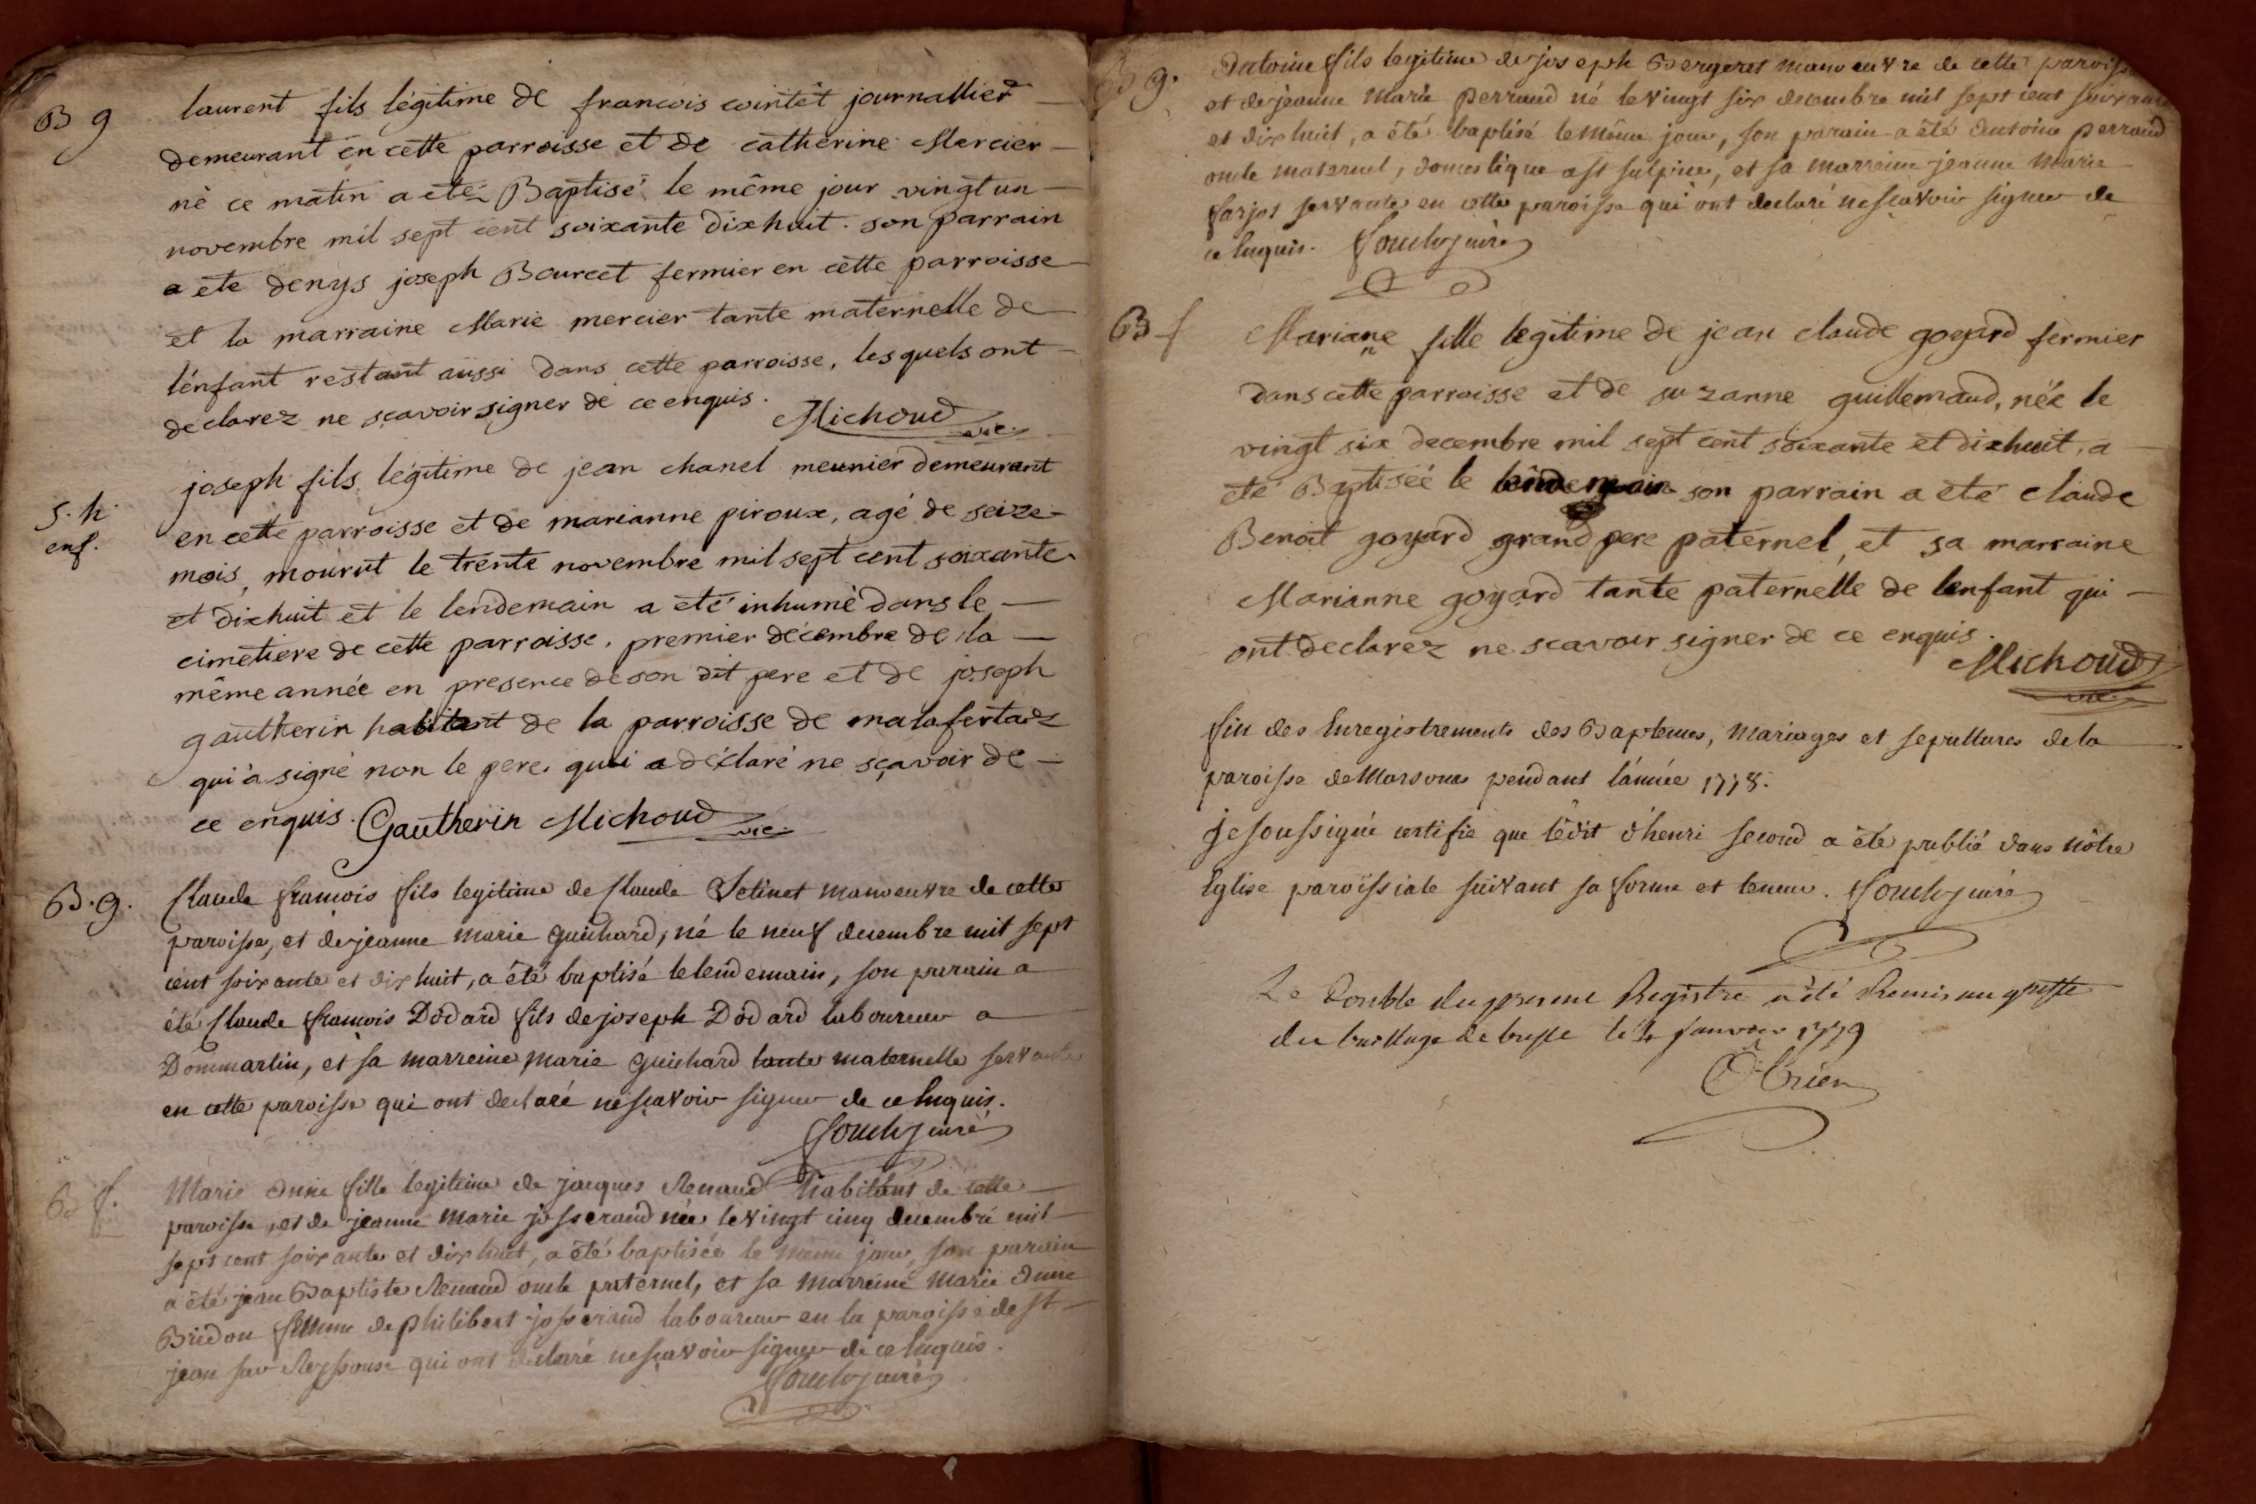 B g
laurent fils légitime de francois cointet journallier
demeurant en cette parroisse et de catherine Mercier
né ce matin a eté Baptisé le même jour vingt un
novembre mil sept cent soixante dixhuit. son parrain
a ete denys joseph Bourcet fermier en cette parroisse
et la marraine Marie mercier tante maternelle de
l'énfant restant aussi dans cette parroisse, lesquels ont
declarez ne sçavoir signer de ce enquis.
Michoud vic.
S. h.
enf.
joseph fils légitime de jean chanel meunier demeurant
en cette parroisse et de marianne piroux, agé de seize
mois, mourut le trente novembre mil sept cent soixante
et dixhuit et le lendemain a eté inhumé dans le
cimetiere de cette parroisse. premier décembre de la
même année en presence de son dit pere et de joseph
gautherin habitant de la parroisse de malafertaz
qui a signé non le pere qui a déclaré ne sçavoir de
ce enquis. Gautherin Michoud vic.
B. g.
Claude francois fils legitime de Claude Velinet manoeuvre de cette
paroisse, et de jeanne marie guichard, né le neuf decembre mil sept
cent soixante et dix huit, a été baptisé le lendemain, son parain a
été Claude francois Dodard fils de joseph Dodard laboureur a
Dommartin, et sa marreine marie guichard tante maternelle servante
en cette paroisse qui ont declaré ne sçavoir signer de ce Enquis.
curé
B f.
Marie Anne fille legitime de jacques Renaud habitant de cette
paroisse, et de jeanne marie josserand née le vingt cinq decembre mil
sept cent soixante et dix huit, a été baptisée le même jour, son parain
a été jean Baptiste Renaud oncle paternel, et sa marreine marie Anne
Bridon femme de philibert josserand laboureur en la paroisse de st
jean sur Reyssouse qui ont declaré ne sçavoir signer de ce Enquis.
curé
B g.
Antoine fils legitime de joseph Bergeret manoeuvre de cette paroisse
et de jeanne marie perraud né le vingt six decembre mil sept cent soixante
et dix huit, a été baptisé le même jour, son parain a été Antoine perraud
oncle maternel, domestique a st sulpice, et sa marreine jeanne marie
farjot servante en cette paroisse qui ont declaré ne sçavoir signer de
ce Enquis. curé
B f
Mariane fille legitime de jean claude goyard fermier
dans cette parroisse et de suzanne guillemaud, née le
vingt six decembre mil sept cent soixante et dixhuit, a
eté Baptiséé le lendemain son parrain a eté claude
Benoit goyard grand pere paternel, et sa marraine
Marianne goyard tante paternelle de lenfant qui
ont declarez ne scavoir signer de ce enquis.
Michoud vic.
fin des Enregistrements des Baptemes, mariages et sepultures de la
paroisse de Marsonas pendant l'année 1778.
je soussigné certifie que l'édit d'henri second a été publié dans nôtre
Eglise paroissiale suivant sa forme et teneur. curé
Le Double du present Registre a été Remis au greffe
du baillage de bresse le 4 janvier 1779